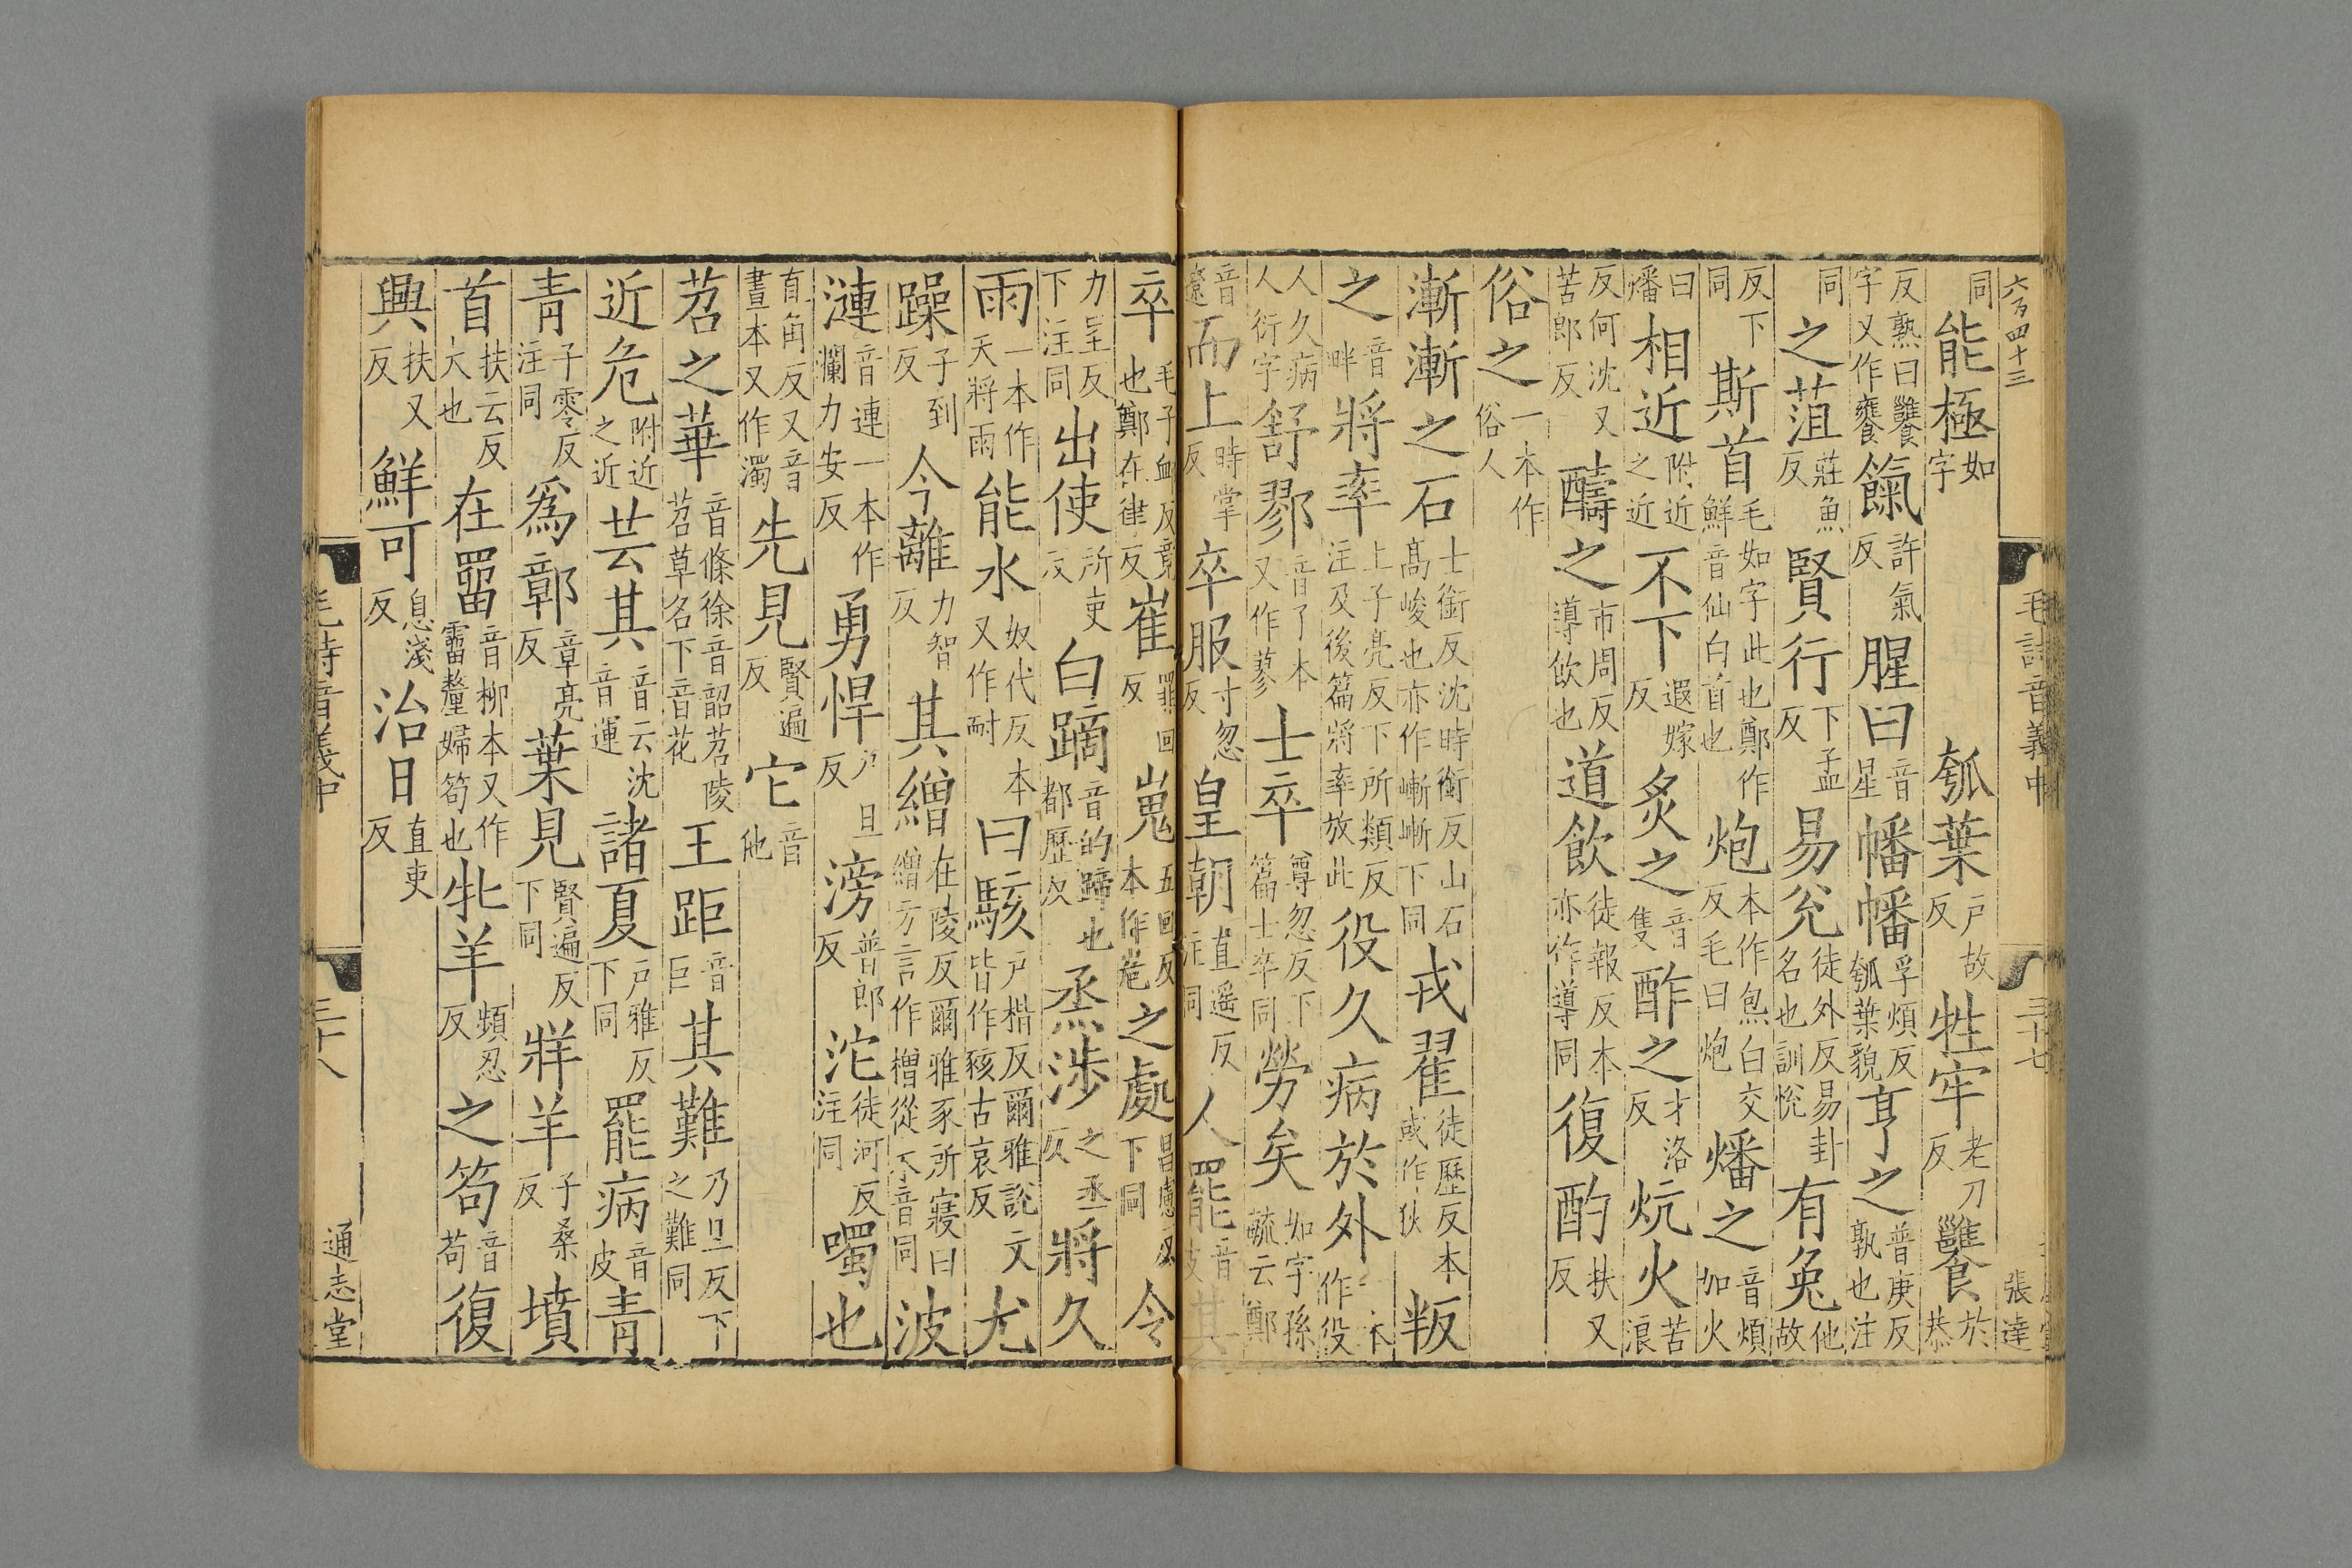 六百四十三
毛詩音義中
三十七
張達
同能極如字瓠葉戶故反牲牢老刀反饔於恭
反熟曰饔字又作饔餼許氣反腥曰音星幡幡孚煩反瓠葉貌亨之普庚反孰也注
同之菹莊魚反賢行下孟反易兊徒外反易卦名也訓悅有兔他故
反下同斯首毛如字此也鄭作鮮音仙白首也炮本作炰白交反毛曰炮燔之音煩加火
曰燔相近附近之近不下遐嫁反炙之音隻酢之才洛反炕火苦浪
反何沈又苦郎反醻之市周反導飲也道飲徒報反本亦作導同復酌扶又反
俗之一本作俗人
漸漸之石士銜反沈時銜反山石高峻也亦作嶃嶃下同戎翟徒歷反本或作狄叛
之音畔將率上子亮反下所類反注及後篇將率放此役久病於外一本作役
人久病人衍字舒鄝音了本又作蓼士卒尊忽反下篇士卒同勞矣如字孫毓云鄭
音遼而上時掌反卒服寸忽反皇朝直遥反注同人罷音皮其
卒毛子恤反竟也鄭在律反崔罪回反嵬五回反本作嵬之處昌慮反下同令
力呈反下注同出使所吏反白蹢音的蹄也都歷次烝涉之丞反將久
雨一本作天將雨能水奴代反本又作耐曰駭戶楷反爾雅說文皆作豥古哀反尤
躁子到反今離力智反其繒在陵反爾雅豕所寢曰繒方言作橧從木音同波
漣音連一本作瀾力安反勇悍乃旦反滂普郎反沱徒河反注同噣也
直角反又音晝本又作濁先見賢遍反它音他
苕之華音條徐音韶苕陵苕草名下音花王距音巨其難乃旦反下之難同
近危附近之近芸其音云沈音運諸夏戶雅反下同罷病音皮青
青子零反注同爲鄣章亮反葉見賢遍反下同牂羊子桑反墳
首扶云反大也在罶音柳本又作霤嫠婦笱也牝羊頻忍反之笱音苟復
興扶又反鮮可息淺反治日直吏反
毛詩音義中
三十八
通志堂